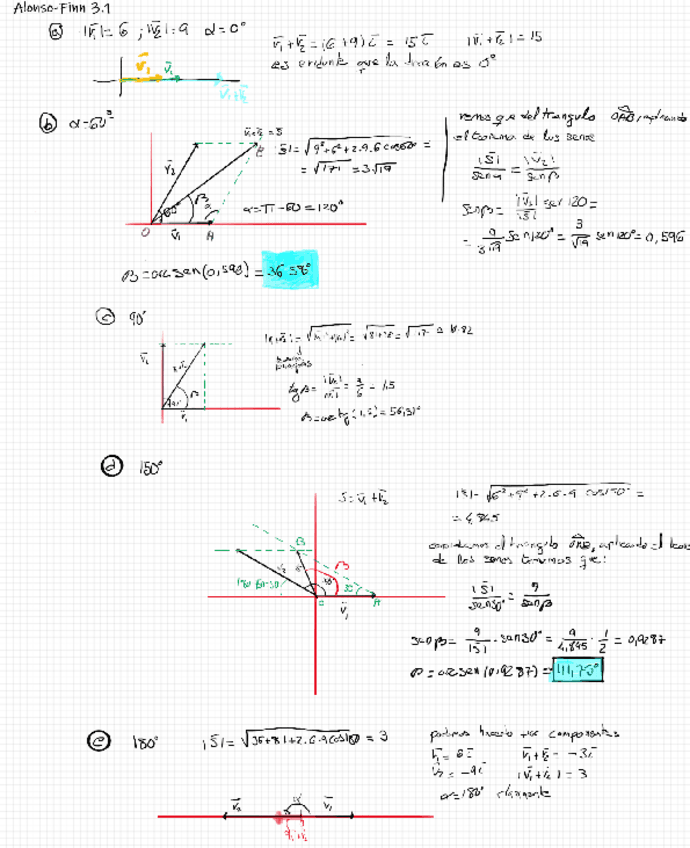 Alonso-Finn 3.1
a) |v̄₁| = 6 ; |v̄₂| = 9 α = 0°
v̄₁ + v̄₂ = (6+9) ī = 15 ī |v̄₁ + v̄₂| = 15
es evidente que la dirección es 0°
v̄₁ v̄₂
v̄₁+v̄₂
b) α = 60°
v̄₁+v̄₂ = s̄
|s̄| = √(9² + 6² + 2·9·6 cos60° =
= √171 = 3√19
v̄₂
60°
β
α
α = π - 60 = 120°
O v̄₁ A
vemos que del triangulo OAB, aplicando
el teorema de los senos
|s̄|/sen α = |v̄₂|/sen β
sen β = |v̄₂|/|s̄| sen 120 =
= 9/3√19 sen 120° = 3/√19 sen 120° = 0,596
β = arcsen (0,596) = 36,58°
c) 90°
v̄₂
β
90°
v̄₁
tg β = |v̄₂|/|v̄₁| = 9/6 = 1,5
β = arctg (1,5) = 56,31°
d) 150°
s̄ = v̄₁ + v̄₂
|s̄| = √(6² + 9² + 2·6·9 cos150° =
= 4,845
B
β
v̄₂
30°
O v̄₁ A
consideramos el triangulo OAB, aplicando el teorema
de los senos tenemos que:
|s̄|/sen 30° = 9/sen β
sen β = 9/|s̄| · sen 30° = 9/4,845 · 1/2 = 0,9287
β = arcsen (0,9287) = 111,75°
e) 180° |s̄| = √(36 + 81 + 2·6·9 cos180 = 3
podemos hacerlo por componentes
v̄₁ = 6ī v̄₁ + v̄₂ = -3ī
v̄₂ = -9ī |v̄₁ + v̄₂| = 3
α = 180° claramente
v̄₂ α v̄₁
v̄₁+v̄₂